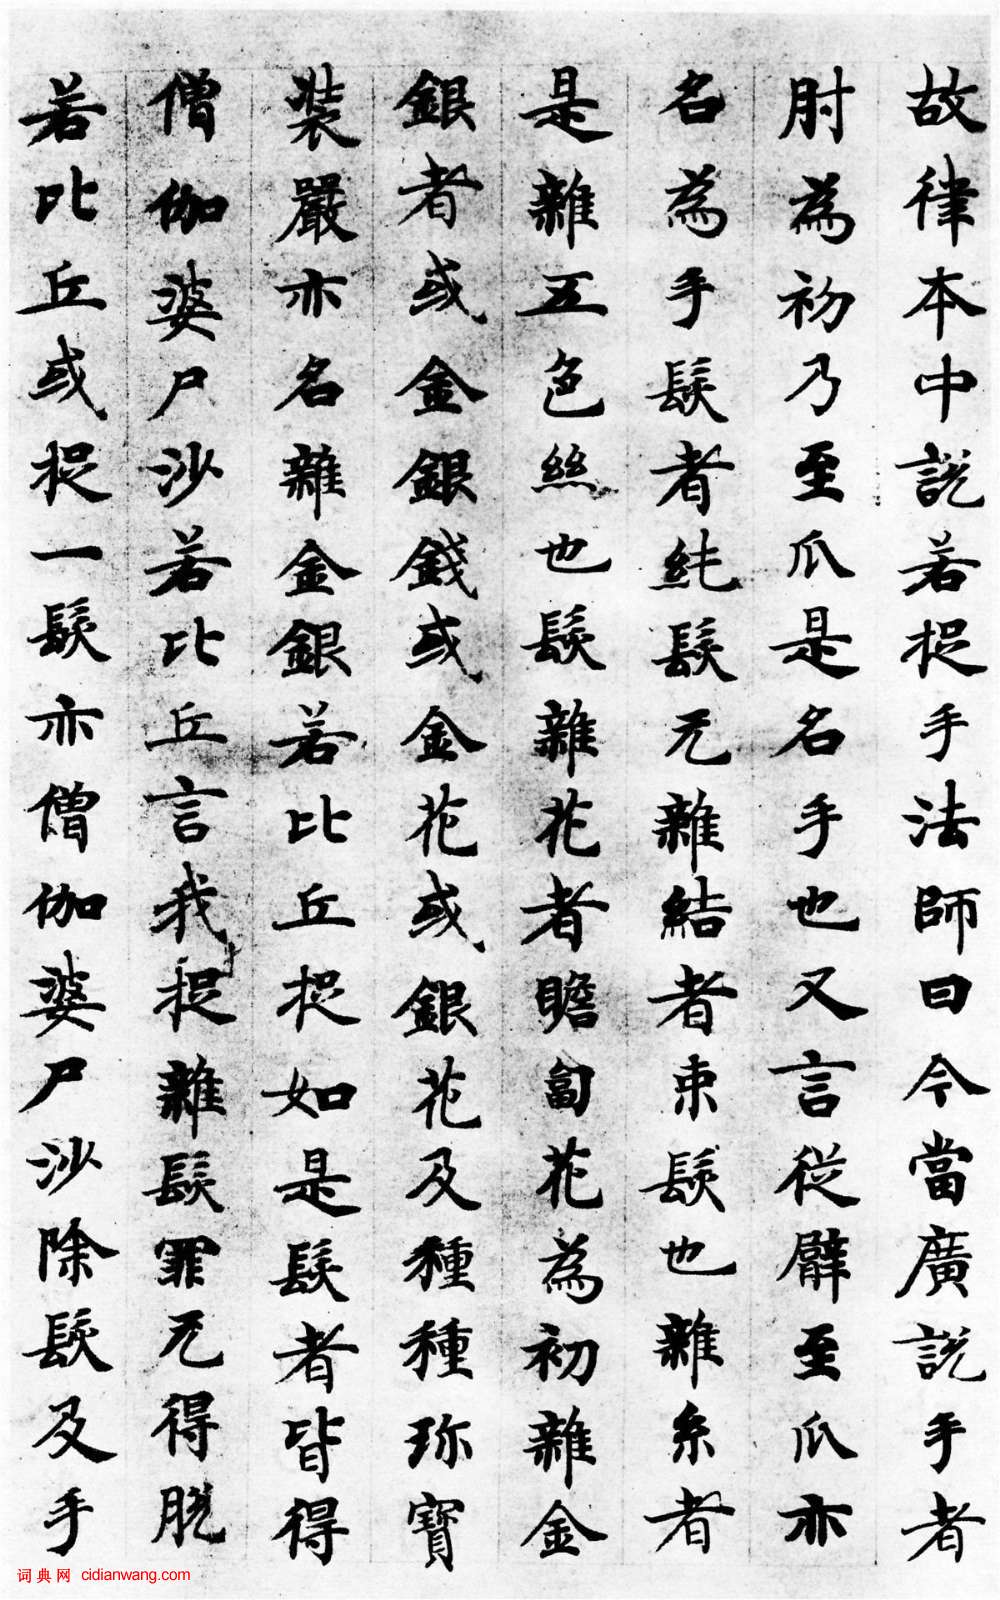 故律本中說若捉手法師曰今當廣說手者
肘為初乃至爪是名手也又言從臂至爪亦
名為手髮者純髮无雜結者束髮也雜糸者
是雜五色絲也髮雜花者瞻匐花為初雜金
銀者或金銀錢或金花或銀花及種種珎寶
裝嚴亦名雜金銀若比丘捉如是髮者皆得
僧伽婆尸沙若比丘言我捉雜髮罪无得脫
若比丘或捉一髮亦僧伽婆尸沙除髮及手
词典网 cidianwang.com